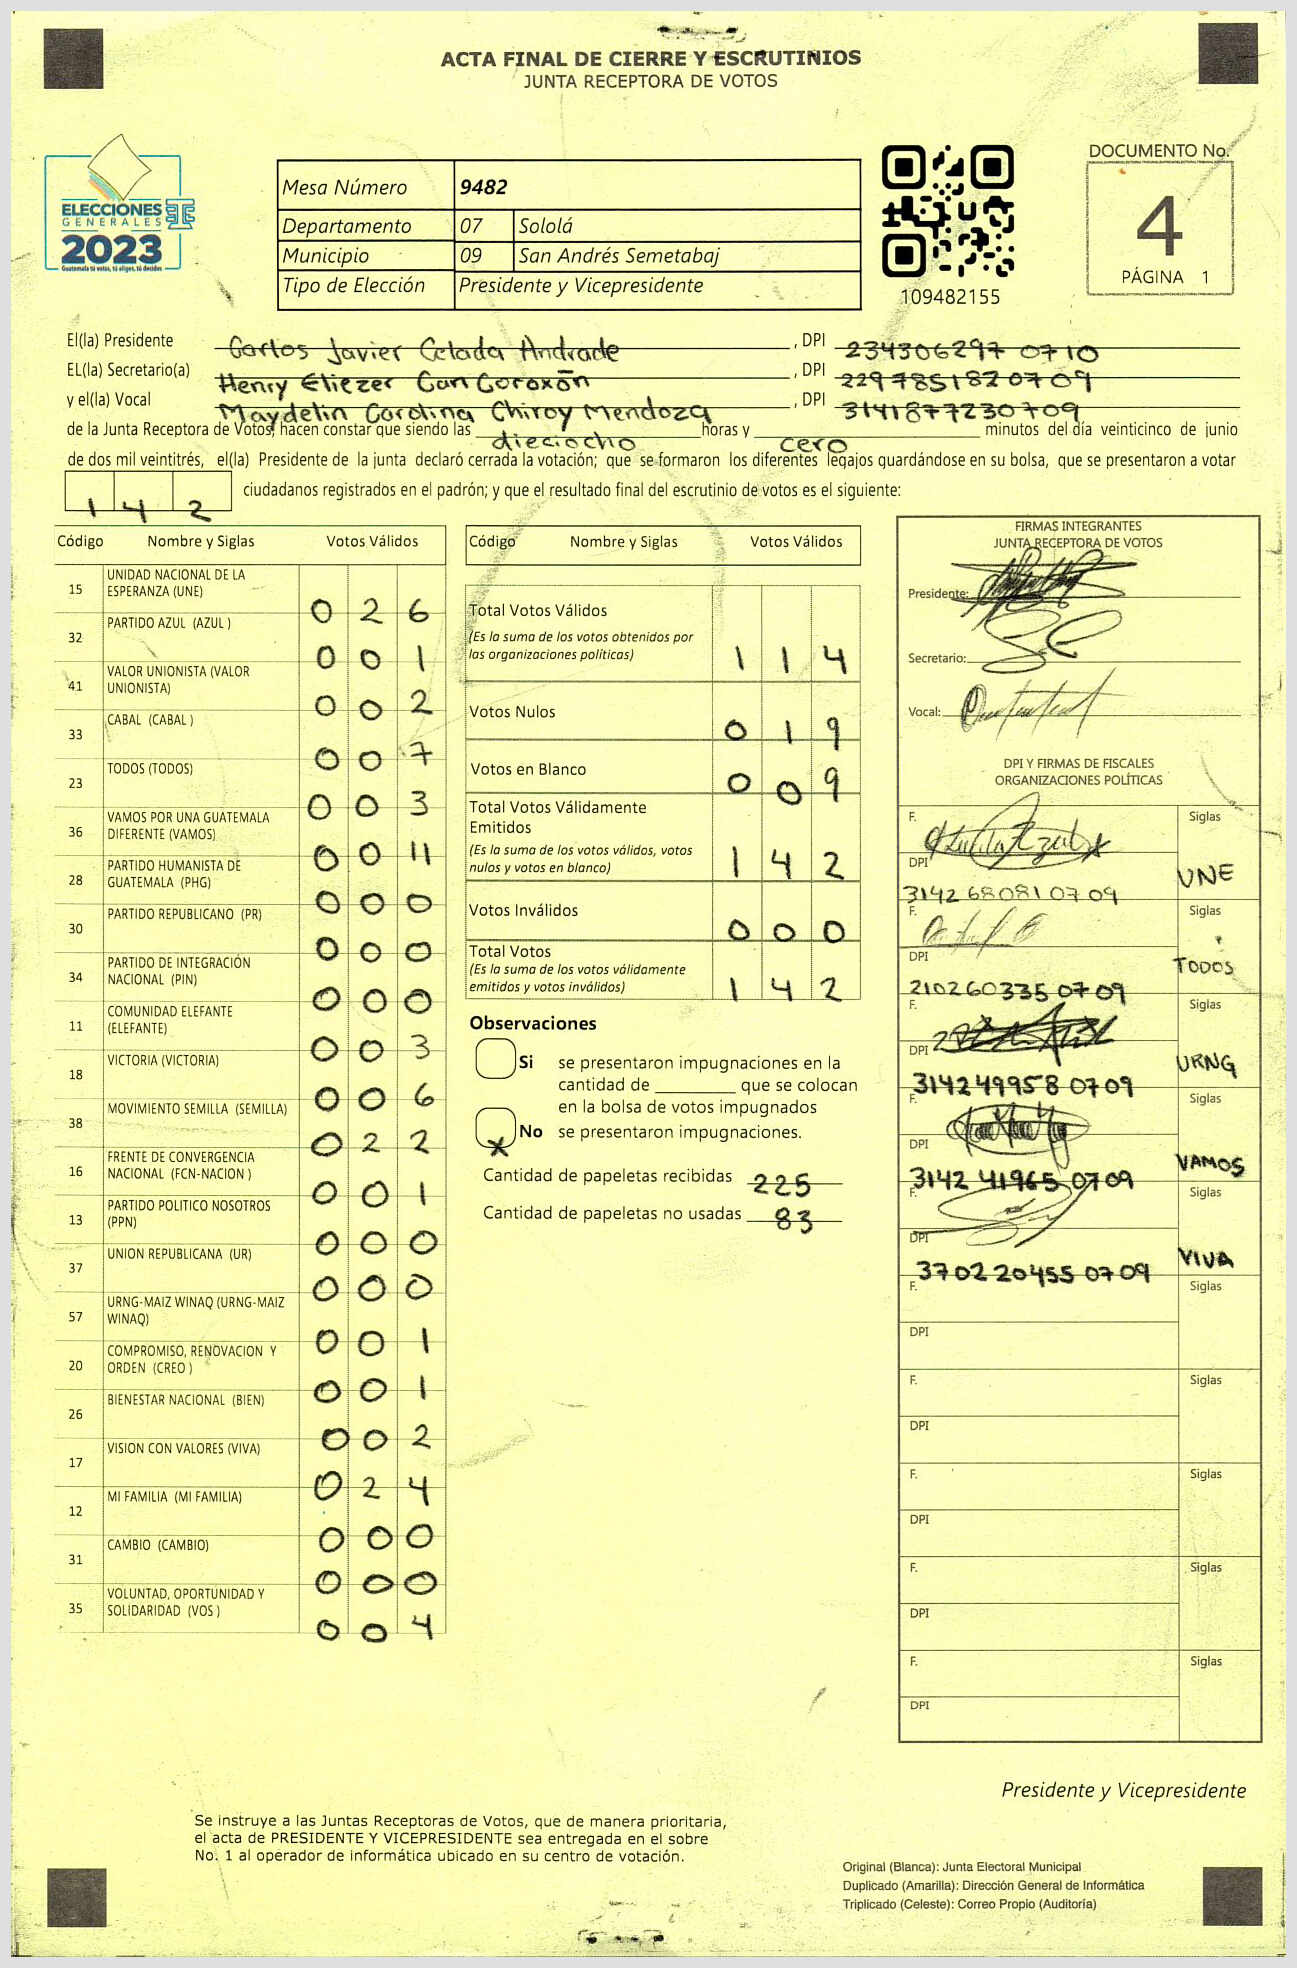 ACTA FINAL DE CIERRE Y ESCRUTINIOS
JUNTA RECEPTORA DE VOTOS
ELECCIONES
GENERALES
2023
Guatemala tú votas, tú eliges, tú decides
Mesa Número 9482
Departamento 07 Sololá
Municipio 09 San Andrés Semetabaj
Tipo de Elección Presidente y Vicepresidente
109482155
DOCUMENTO No.
4
PÁGINA 1
El(la) Presidente Carlos Javier Celada Andrade , DPI 234306297 0710
EL(la) Secretario(a) Henry Eliezer Can Coroxón , DPI 229785182 0709
y el(la) Vocal Maydelin Carolina Chiroy Mendoza , DPI 314187723 0709
de la Junta Receptora de Votos, hacen constar que siendo las dieciocho horas y cero minutos del día veinticinco de junio
de dos mil veintitrés, el(la) Presidente de la junta declaró cerrada la votación; que se formaron los diferentes legajos guardándose en su bolsa, que se presentaron a votar
1 4 2 ciudadanos registrados en el padrón; y que el resultado final del escrutinio de votos es el siguiente:
Código Nombre y Siglas Votos Válidos
15 UNIDAD NACIONAL DE LA ESPERANZA (UNE) 0 2 6
32 PARTIDO AZUL (AZUL ) 0 0 1
41 VALOR UNIONISTA (VALOR UNIONISTA) 0 0 2
33 CABAL (CABAL ) 0 0 7
23 TODOS (TODOS) 0 0 3
36 VAMOS POR UNA GUATEMALA DIFERENTE (VAMOS) 0 0 11
28 PARTIDO HUMANISTA DE GUATEMALA (PHG) 0 0 0
30 PARTIDO REPUBLICANO (PR) 0 0 0
34 PARTIDO DE INTEGRACIÓN NACIONAL (PIN) 0 0 0
11 COMUNIDAD ELEFANTE (ELEFANTE) 0 0 3
18 VICTORIA (VICTORIA) 0 0 6
38 MOVIMIENTO SEMILLA (SEMILLA) 0 2 2
16 FRENTE DE CONVERGENCIA NACIONAL (FCN-NACION ) 0 0 1
13 PARTIDO POLITICO NOSOTROS (PPN) 0 0 0
37 UNION REPUBLICANA (UR) 0 0 0
57 URNG-MAIZ WINAQ (URNG-MAIZ WINAQ) 0 0 1
20 COMPROMISO, RENOVACION Y ORDEN (CREO ) 0 0 1
26 BIENESTAR NACIONAL (BIEN) 0 0 2
17 VISION CON VALORES (VIVA) 0 2 4
12 MI FAMILIA (MI FAMILIA) 0 0 0
31 CAMBIO (CAMBIO) 0 0 0
35 VOLUNTAD, OPORTUNIDAD Y SOLIDARIDAD (VOS ) 0 0 4
Código Nombre y Siglas Votos Válidos
Total Votos Válidos
(Es la suma de los votos obtenidos por
las organizaciones políticas) 1 1 4
Votos Nulos 0 1 9
Votos en Blanco 0 0 9
Total Votos Válidamente
Emitidos
(Es la suma de los votos válidos, votos
nulos y votos en blanco) 1 4 2
Votos Inválidos 0 0 0
Total Votos
(Es la suma de los votos válidamente
emitidos y votos inválidos) 1 4 2
Observaciones
Si se presentaron impugnaciones en la
cantidad de ________ que se colocan
en la bolsa de votos impugnados
x No se presentaron impugnaciones.
Cantidad de papeletas recibidas 225
Cantidad de papeletas no usadas 83
FIRMAS INTEGRANTES
JUNTA RECEPTORA DE VOTOS
Presidente:
Secretario:
Vocal:
DPI Y FIRMAS DE FISCALES
ORGANIZACIONES POLÍTICAS
F. Siglas
DPI UNE
3142 68081 0709
F. Siglas
DPI TODOS
210260335 0709
F. Siglas
DPI URNG
314249958 0709
F. Siglas
DPI VAMOS
3142 41965 0709
F. Siglas
DPI VIVA
370220455 0709
F. Siglas
DPI
F. Siglas
DPI
F. Siglas
DPI
F. Siglas
DPI
F. Siglas
DPI
Presidente y Vicepresidente
Se instruye a las Juntas Receptoras de Votos, que de manera prioritaria,
el acta de PRESIDENTE Y VICEPRESIDENTE sea entregada en el sobre
No. 1 al operador de informática ubicado en su centro de votación.
Original (Blanca): Junta Electoral Municipal
Duplicado (Amarilla): Dirección General de Informática
Triplicado (Celeste): Correo Propio (Auditoría)